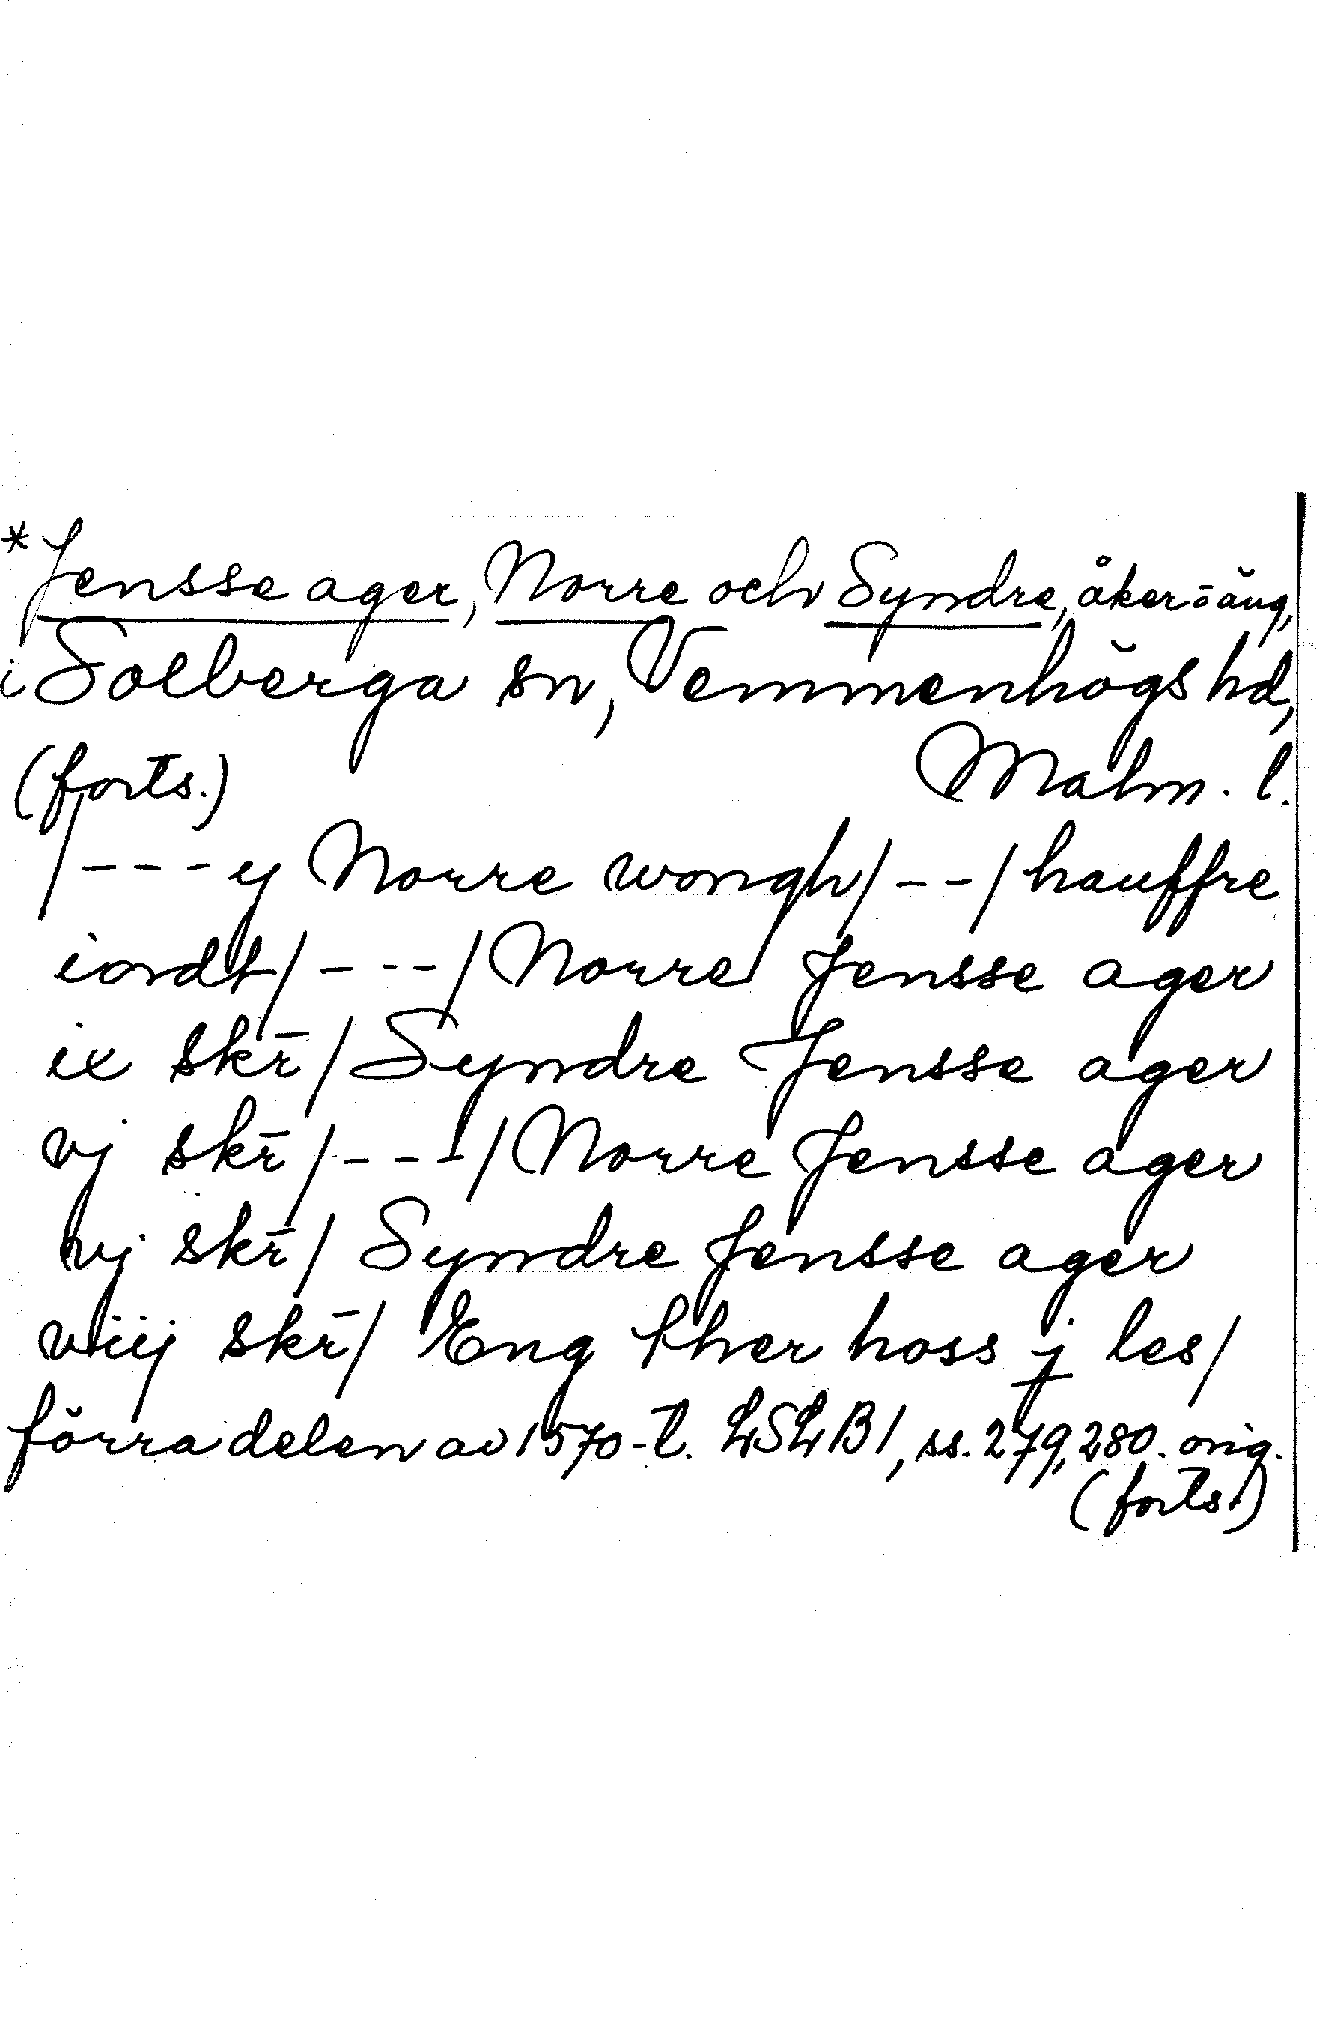 *Jensse ager, Norre och Syndre, åker o äng,
i Solberga sn, Vemmenhögs hd,
(forts.) Malm. l.
/---y Norre wongh/--/hauffre
iordt/---/Norre Jensse ager
ix skr̄/Syndre Jensse ager
vj skr̄/---/Norre Jensse ager
vj skr̄/ Syndre Jensse ager
viij skr̄/ Eng ther hoss j les/
förra delen av 1570-t. LSLB1, ss. 279, 280. orig.
(forts.)